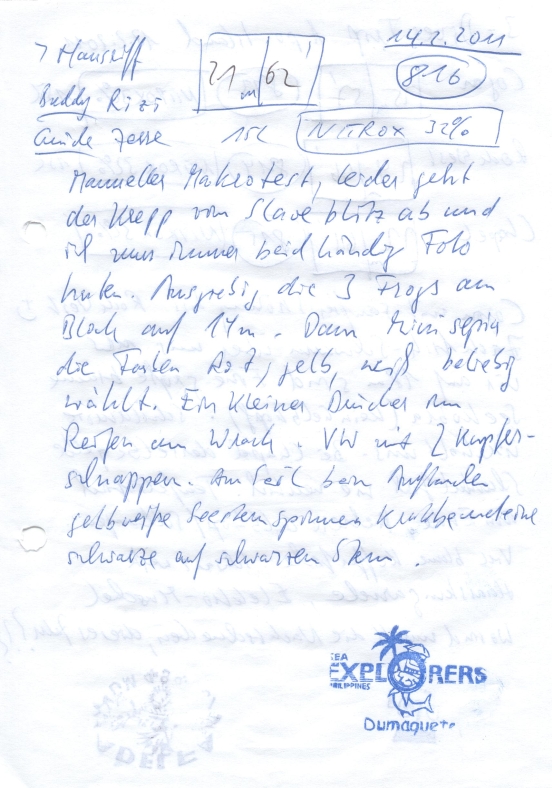 > Hausriff 14.2.2011
21 m 62' 816
Buddy Rizi
Guide Jesse 15L NITROX 32%
Manueller Makrotest, leider geht
der Klepp vom Slave blitz ab und
ich muss immer beidhändig Foto
Ausgiebig die 3 Frogs am
Block auf 14m. Dann Mini sepia
die Farben rot, gelb, weiß beliebig
wählt. Ein kleiner Drücker im
Reifen am Wrack. VW mit 2 Kupfer-
schnappen. Am Seil beim Auftauchen
gelbweiße Seestern spinnen Krabbe
schwarze auf schwarzen Stern.
SEA
EXPLORERS
PHILIPPINES
Dumaguete